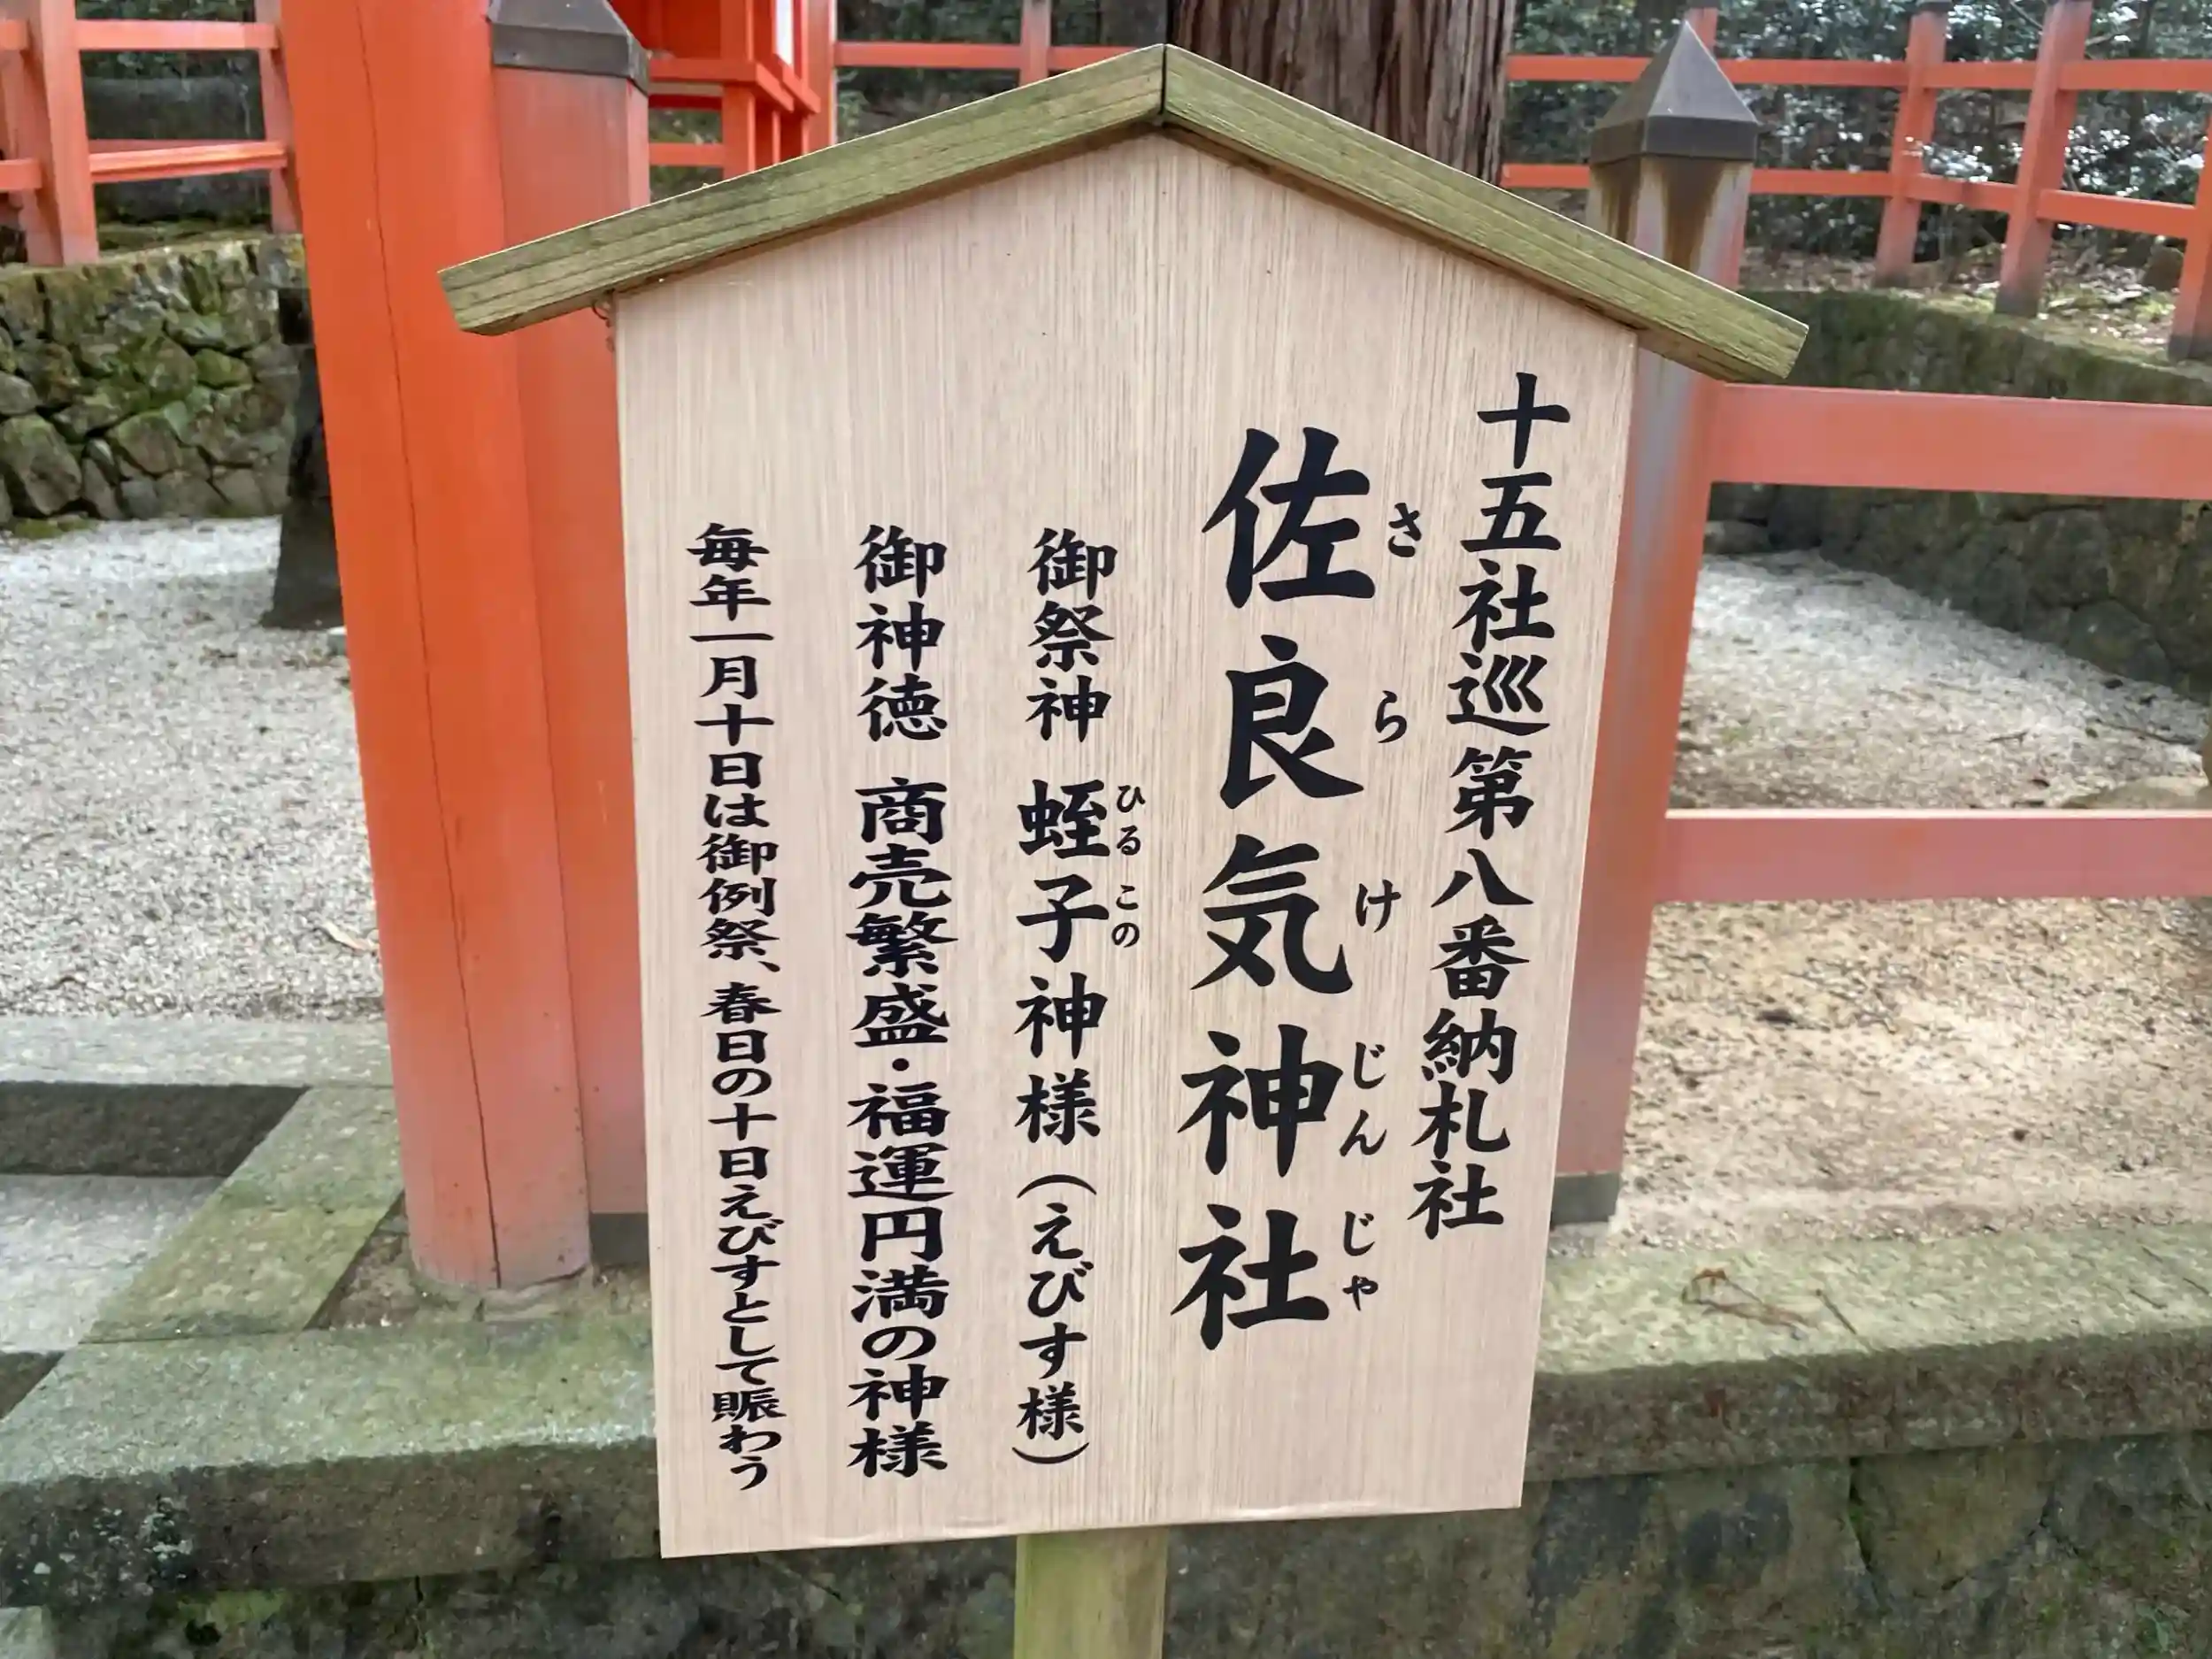 十五社巡 第八番納札社
佐良気神社
さらけじんじゃ
御祭神 蛭子神様（えびす様）
ひるこの
御神徳 商売繁盛・福運円満の神様
毎年一月十日は御例祭、春日の十日えびすとして賑わう